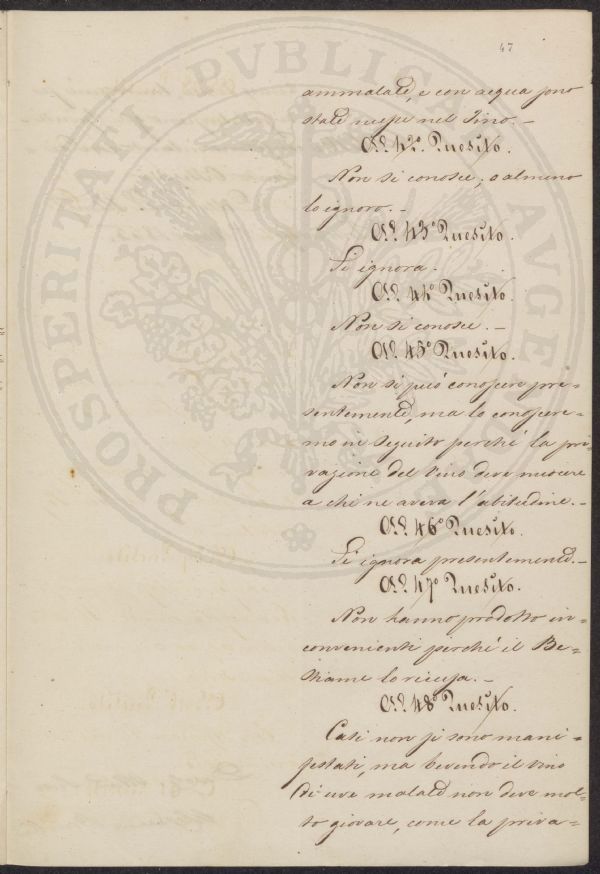 47
ammalate, e con acqua sono
state messe nel Tino. –
Al 42º Quesito.
Non si conosce, o almeno
lo ignoro. –
Al 43º Quesito.
Si ignora.
Al 44º Quesito.
Non si conosce. –
Al 45º Quesito.
Non si può conoscere pre=
sentemente, ma lo conoscere=
mo in seguito perchè la pri=
vazione del Vino deve nuocere
a chi ne aveva l'abitudine. –
Al 46º Quesito.
Si ignora presentemente. –
Al 47º Quesito.
Non hanno prodotto in=
convenienti perchè il Be=
stiame lo ricusa. –
Al 48º Quesito.
Casi non si sono mani=
festati, ma bevendo il vino
di uve malate non deve mol=
to giovare, come la priva=
PROSPERITATI PVBLICAE AVGENDAE